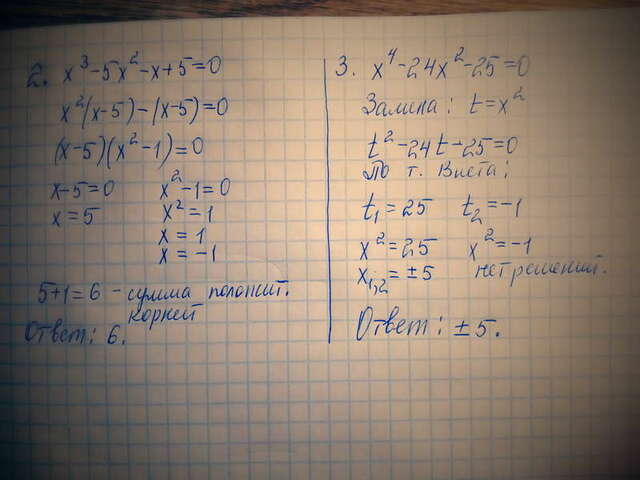 2. x³-5x²-x+5=0
x²(x-5)-(x-5)=0
(x-5)(x²-1)=0
x-5=0 x²-1=0
x=5 x²=1
x=1
x=-1
5+1=6 - сумма положит.
корней
Ответ: 6.
3. x⁴-24x²-25=0
Замена: t=x²
t²-24t-25=0
По т. Виета:
t₁=25 t₂=-1
x²=25 x²=-1
x₁,₂=±5 нет решений.
Ответ: ±5.